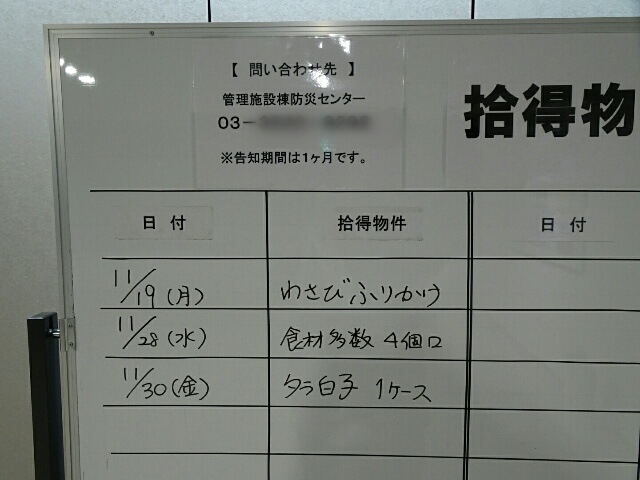 【 問い合わせ先 】
管理施設棟防災センター
03-
※告知期間は1ヶ月です。
拾得物
日付 拾得物件 日付
11/19(月) わさびふりかけ
11/28(水) 食材多数 4個口
11/30(金) タラ白子 1ケース